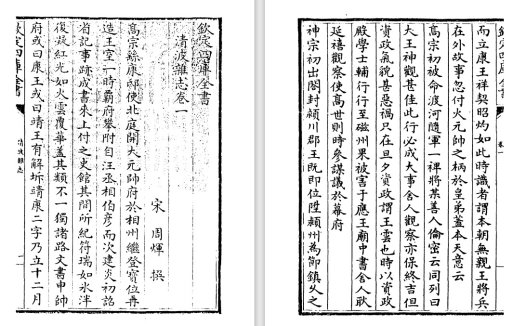 欽定四庫全書
清波雜志卷一
宋 周煇 撰
高宗繇康邸使北庭開大元帥府於相州繼登寳位再
造王室一時覇府攀附自汪丞相伯彦而次建炎初詔
省記事跡成書來上付之史館其間所紀符瑞如氷泮
復凝紅光如火雲覆華蓋其類不一獨諸路文書申帥
府或曰康王或曰靖王有解拆靖康二字乃立十二月
欽定四庫全書
清波雜志
欽定四庫全書
卷一
而立康王祥契昭灼如此時識者謂本朝無親王將兵
在外故事忽付大元帥之柄於皇弟蓋本天意云
高宗初被命渡河隨軍一禆將某善人倫密云同列曰
大王神觀甚佳此行必成大事舍人觀察亦保終吉但
資政氣貌甚惡禍只在旦夕資政謂王雲也時以資政
殿學士輔行行至磁州果被害于應王廟中書舍人耿
延禧觀察使高世則時參謀議於幕府
神宗初出閣封頴川郡王既即位陞頴州為節鎮久之